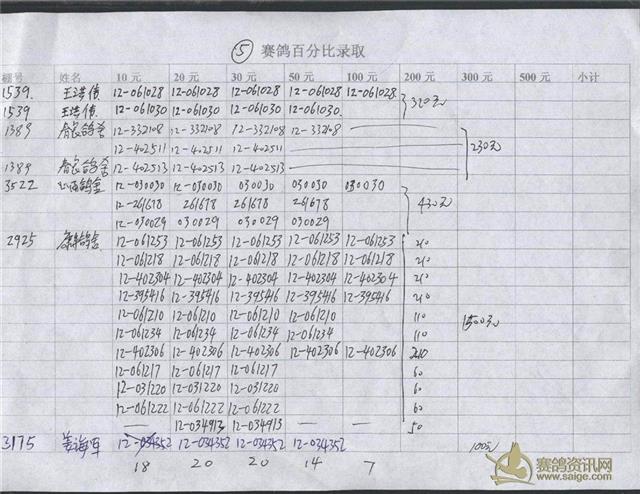 ⑤ 赛鸽百分比录取
棚号 姓名 10元 20元 30元 50元 100元 200元 300元 500元 小计
1539. 王洪倩 12-061028 12-061028 12-061028 12-061028 12-061028
1539 王洪倩 12-061030 12-061030 12-061030 12-061030. 320元
1389 鸽舍 12-332108 12-332108 12-332108 12-332108 —
12-402511 12-402511 12-402511 — 230元
1389 鸽舍 12-402513 12-402513 12-402513 —
3522 鸽舍 12-030030 12-030030 030030 030030 030030
12-261678 261678 261678 261678 430元
12-030029 030029 030029 030029
2925 鸽舍 12-061253 12-061253 12-061253 12-061253 12-061253 210
12-061218 12-061218 12-061218 12-061218 12-061218 210
12-402304 12-402304 12-402304 12-402304 12-402304 210
12-395416 12-395416 12-395416 12-395416 12-395416 210
12-061210 12-061210 12-061210 12-061210 110
12-061234 12-061234 12-061234 12-061234 110 1500元
12-402306 12-402306 12-402306 12-402306 12-402306 210
12-061217 12-061217 12-061217 60
12-031220 12-031220 12-031220 60
12-061222 12-061222 12-061222 60
— 12-034913 12-034913 50
3175 姜海军 12-034352 12-034352 12-034352 12-034352 100元
18 20 20 14 7
赛鸽资讯网
www.saige.com